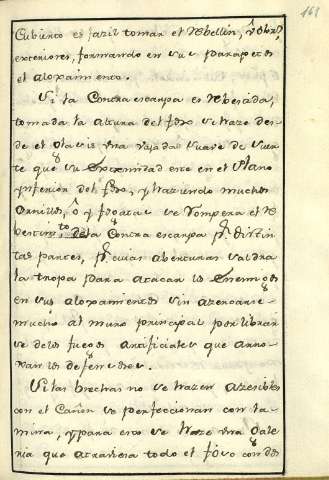 161
Cubierto es facil tomar el Rebellin, û obras
exteriores, formando en sus parapetos
el aloxamiento.
Si la Contra escarpa es rebestida,
tomada la altura del foso se haze des
de el Glasis una vajada suave de suer
te que su Extremidad este en el Plano
inferior del foso, y haziendo muchos
ornillos, ô fogatas se rompera el re
bestim.to de la Contra escarpa p.r distin
tas partes, p.r cuias aberturas saldra
la tropa para atacar los Enemigos
en sus aloxamientos sin azercarse
mucho al muro principal por librar
se de los fuegos artificiales que arro
xan los defensores.
Si las brechas no se hazen azesibles
con el Cañon se perfeccionan con la
mina, y para esto se haze una Gale
ria que atraviesa todo el foso con dos